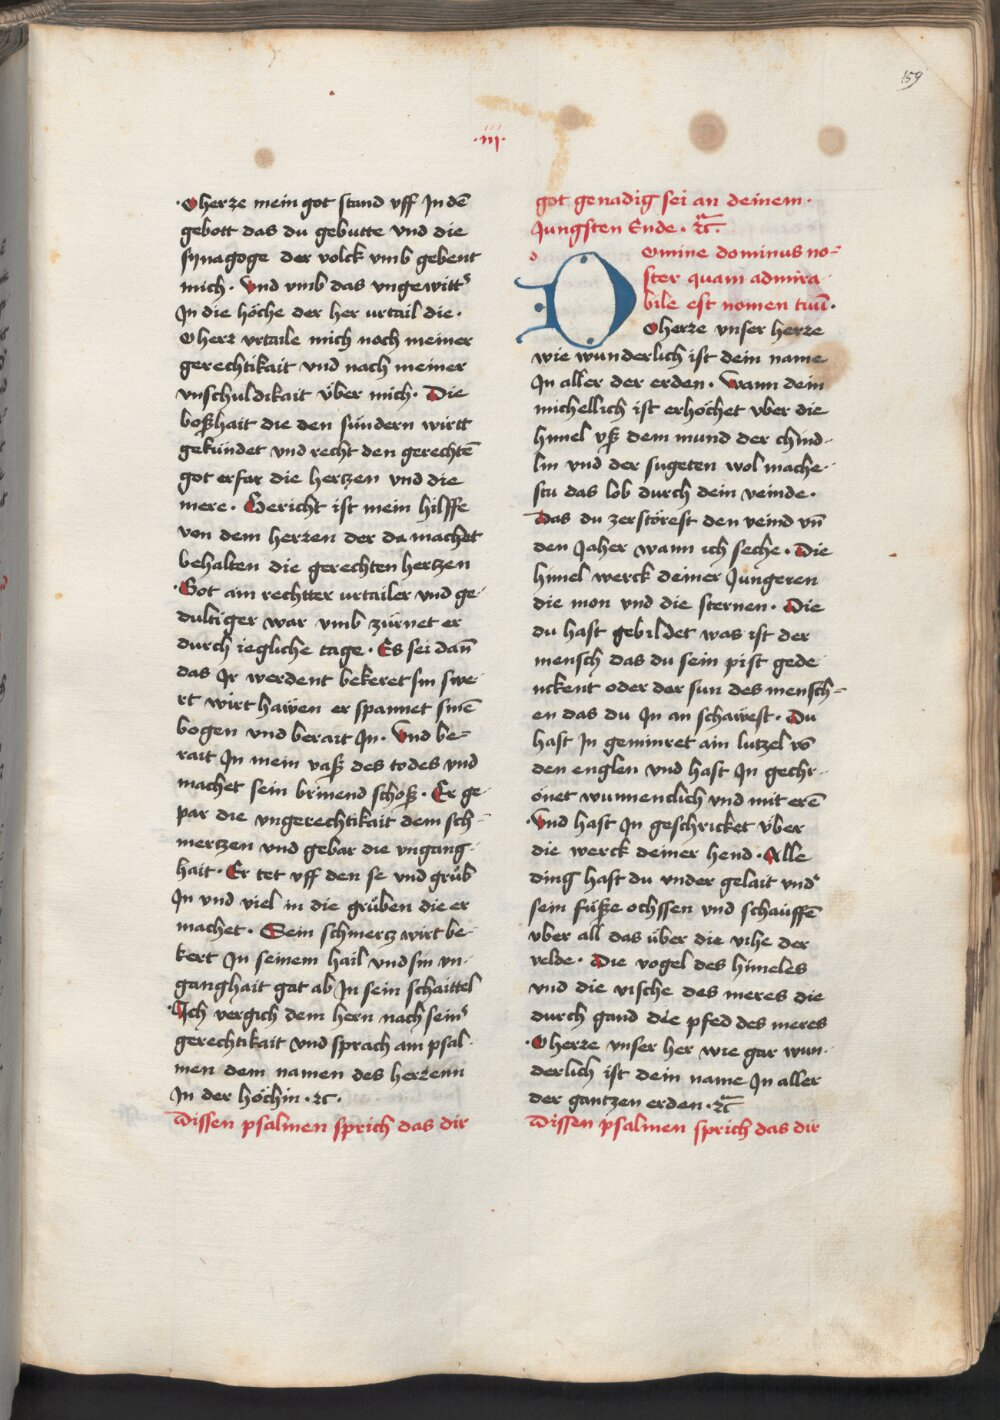 159
·iij·
·O herze mein got stand vff Jn dē
gebott das du gebutte vnd die
synagoge der volck vmb gebent
mich· Vnd vmb das vngewitt˜
Jn die höche der her vrtail die·
O herr vrtaile mich noch meiner
gerechtikait vnd nach meiner
vnschuldikait über mich· Die
boßhait die den sündern wirtt
gekündet vnd recht den gerechtē
got erfar die hertzen vnd die
mere· Gericht ist mein hilffe
von dem herren der da machet
behalten die gerechten hertzen
·Got am rechtter vrtailer vnd ge-
dultiger war vmb zürnet er
durch iegliche tage· Es sei dañ
das Jr werdent bekeret sin swe-
rt wirt hawen er spannet sinē
bogen vnd berait Jn· Vnd be-
rait Jn mein vaß des todes vnd
machet sein brinend schoß· Er ge-
par die vngerechtikait dem sch-
mertzen vnd gebar die vngang-
hait· Er tet vff den se vnd grůb
Jn vnd viel in die grůben die er
machet· Sein schmertz wirt be-
kert Jn seinem hail vnd sin vn-
ganghait gat ab Jn sein schaittel
·Ich vergich dem hern nach sein˜
gerechtikait vnd sprach am psal-
men dem namen des herrenn
Jn der höchin ·ꝛc·
Dissen psalmen sprich das dir
got genadig sei an deinem·
Jungsten Ende· ꝛc·
Domine dominus no-
ster quam admira-
bile est nomen tuū·
O herre vnser herre
wie wunderlich ist dein name
Jn aller der erden· Wann dein
michellich ist erhöchet vber die
himel vß dem mund der chind-
lin vnd der sugeten wol mache-
stu das lob durch dein veinde·
Das du zerstörest den veind vñ
den Jaher wann ich seche· Die
himel werck deiner Jungeren
die mon vnd die sternen· Die
du hast gebildet was ist der
mensch das du sein pist gede-
nckent oder der sun des mensch-
en das du Jn an schawest· Du
hast Jn geminret ain lutzel vō
den englen vnd hast Jn gechr-
önet wunnenclich vnd mit erē
·Vnd hast Jn geschricket über
die werck deiner hend· Alle
ding hast du vnder gelait vnd˜
sein füße ochssen vnd schauffē
vber all das über die vihe der
velde· Die vogel des himeles
vnd die vische des meres die
durch gand die pfed des meres
·O herre vnser her wie gar wun-
derlich ist dein name Jn aller
der gantzen erden· ꝛc
Dissen psalmen sprich das dir